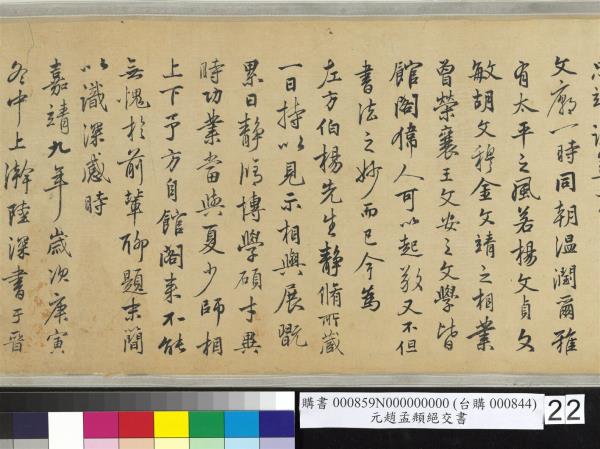 文廟一時同朝溫潤爾雅
有太平之風若楊文貞文
敏胡文穆金文靖之相業
曾榮襄王文安之文學皆
館閣偉人可以起敬又不但
書法之妙而已今為
左方伯楊先生靜脩所藏
一日持以見示相與展翫
累日靜脩博學碩才異
時功業當與夏少師相
上下予方自館閣來不能
無愧於前輩聊題末簡
以識深感時
嘉靖九年歲次庚寅
冬中上澣陸深書于晉
購書 000859N000000000 (台購 000844)
元趙孟頫絕交書
22